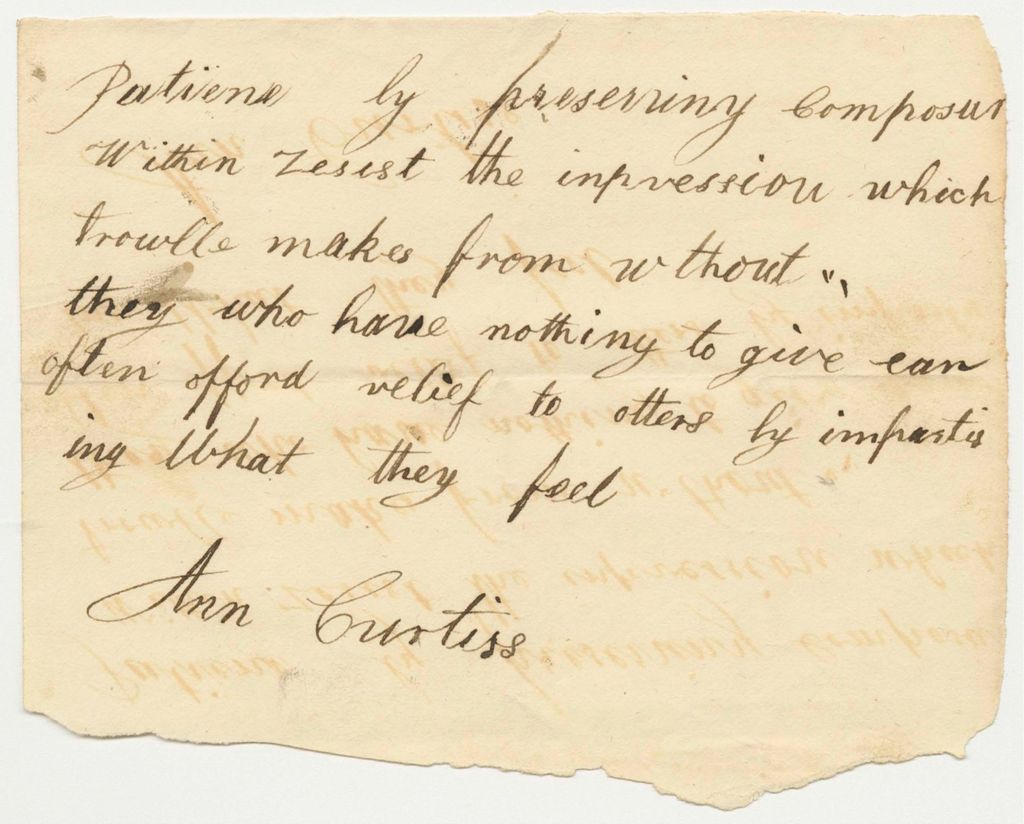 Patiene by preserriny Composur
Within resist the inpression which
trowlle makes from w thout "
they who have nothing to give can
often offord relief to otters by impartis
ing What they feel
Ann Curtiss